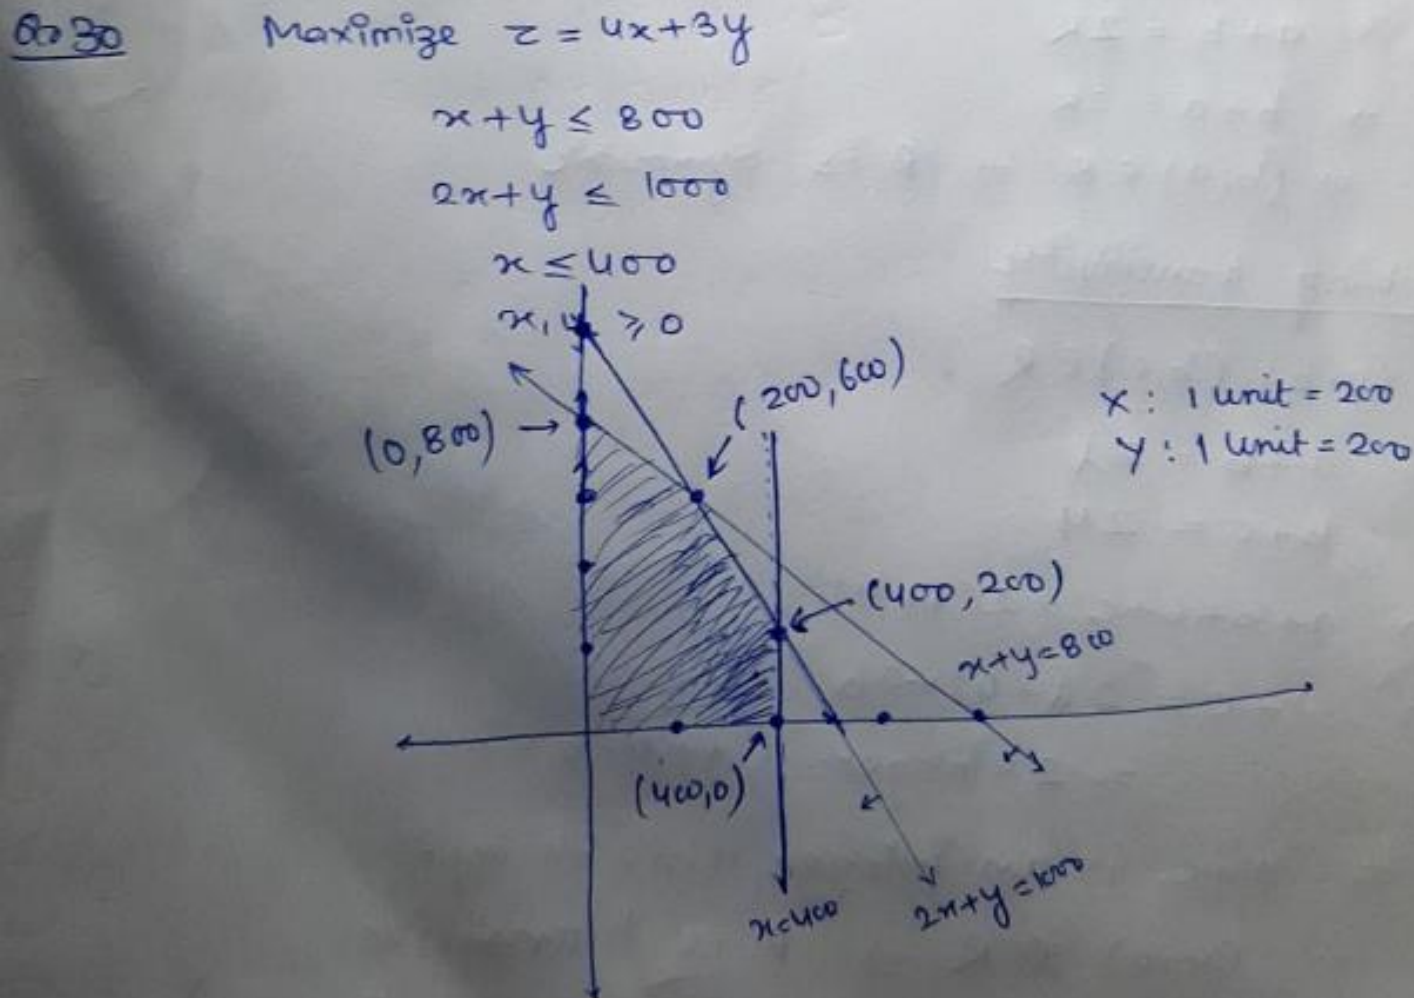 Q.30 Maximize z = 4x+3y
x+y ≤ 800
2x+y ≤ 1000
x ≤ 400
x, y ≥ 0
(200,600)
X : 1 unit = 200
(0,800)
Y : 1 Unit = 200
(400,200)
x+y=800
(400,0)
x=400
2x+y=1000